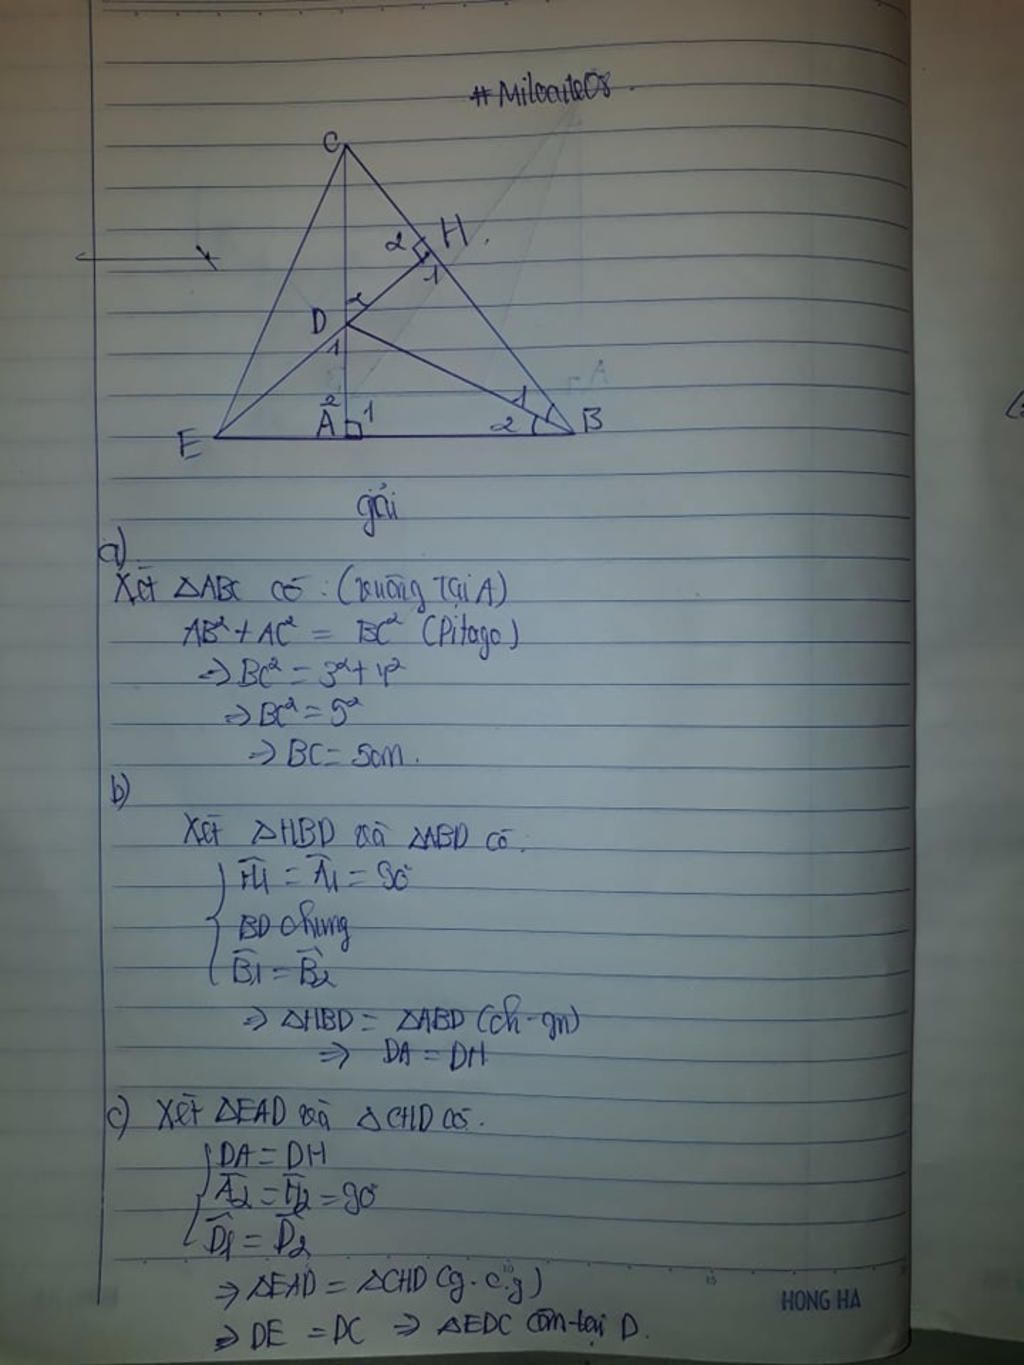 #Milcate08.
C
2 H.
1
D 2
1
2 1
A
1
2 B
E
giải
a)
Xét △ABC có: (vuông tại A)
AB² + AC² = BC² (Pitago)
⇒ BC² = 3² + 4²
⇒ BC² = 5²
⇒ BC = 5cm.
b)
Xét △HBD và △ABD có:
Ĥ1 = Â1 = 90°
BD chung
B̂1 = B̂2
⇒ △HBD = △ABD (ch-gn)
⇒ DA = DH
c) Xét △EAD và △CHD có.
DA = DH
Â2 = Ĥ2 = 90°
D̂1 = D̂2
⇒ △EAD = △CHD (g.c.g)
⇒ DE = DC ⇒ △EDC cân tại D.
10
15
HONG HA